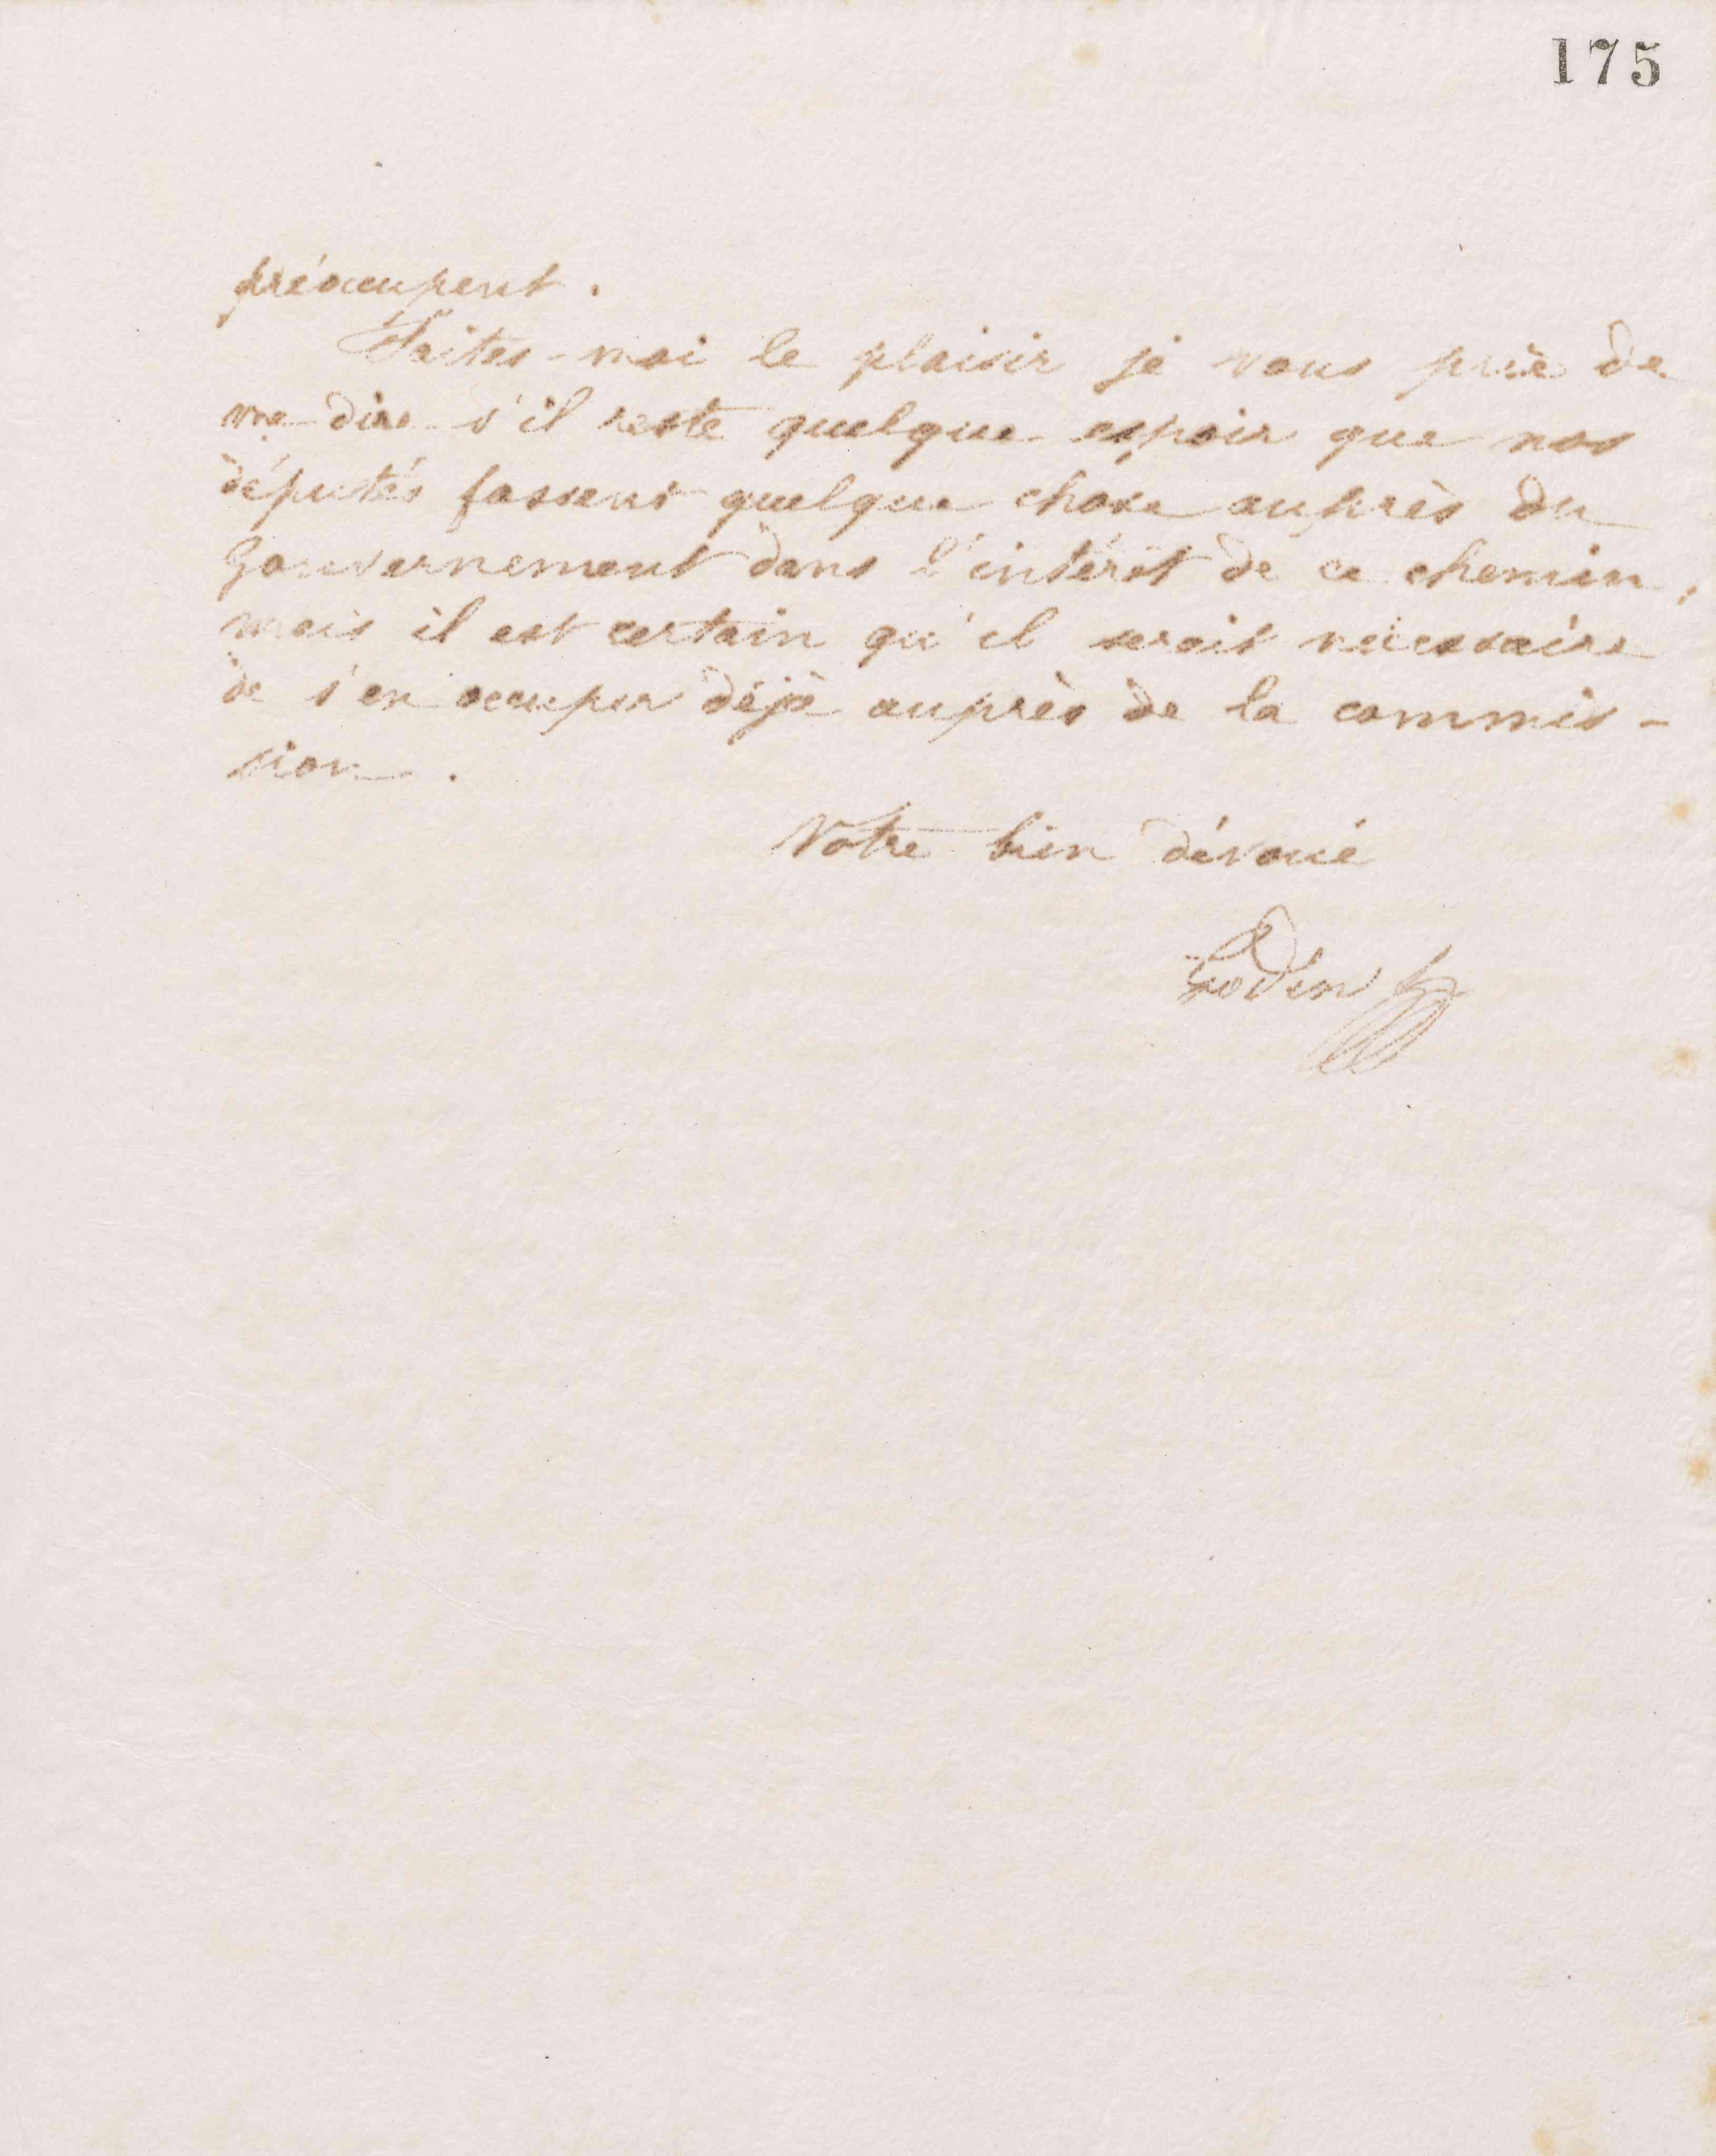 175
préoccupent.
Faites-moi le plaisir je vous prie de
me dire s'il reste quelque espoir que nos
députés fassent quelque chose auprès du
Gouvernement dans l'intérêt de ce chemin,
mais il est certain qu'il serait nécessaire
de s'en occuper déjà auprès de la commis-
sion.
Votre bien dévoué
Godin